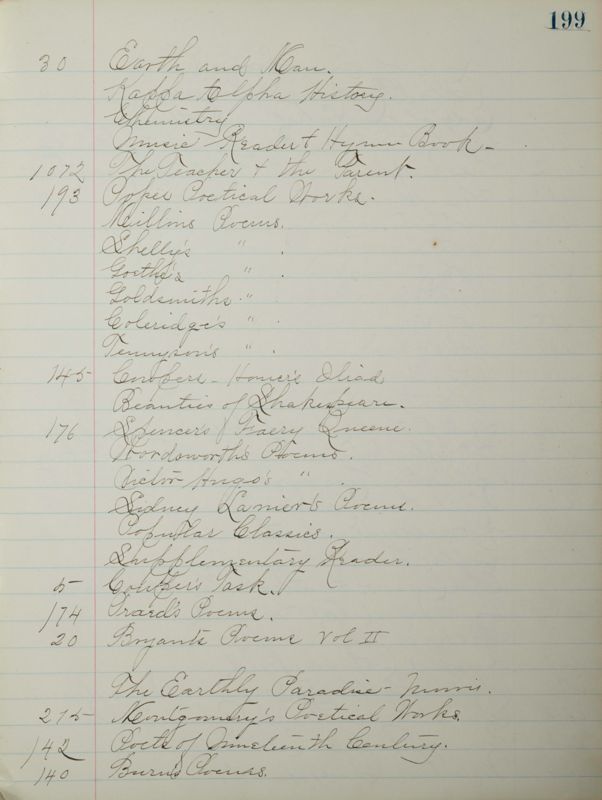 199
30 Earth and Man.
Kappa Alpha History.
Chemistry
Music - Reader & Hymn Book -
1072 The Teacher & the Parent.
193 Popes Poetical Works.
Miltons Poems.
Shelly's " .
Goethe's " .
Goldsmiths "
Coleridge's " .
Tennyson's " .
145 Cowpers - Homer's Iliad
Beauties of Shakespeare.
176 Spencer's Faery Queene.
Wordsworth's Poems.
Victor Hugo's " .
Sidney Lanier's Poems.
Popular Classics.
Supplementary Reader.
5 Cowper's Task.
174 Praed's Poems.
20 Bryant's Poems Vol II
The Earthly Paradise - Morris.
215 Montgomery's Poetical Works.
142 Poets of Nineteenth Century.
140 Burns Poems.